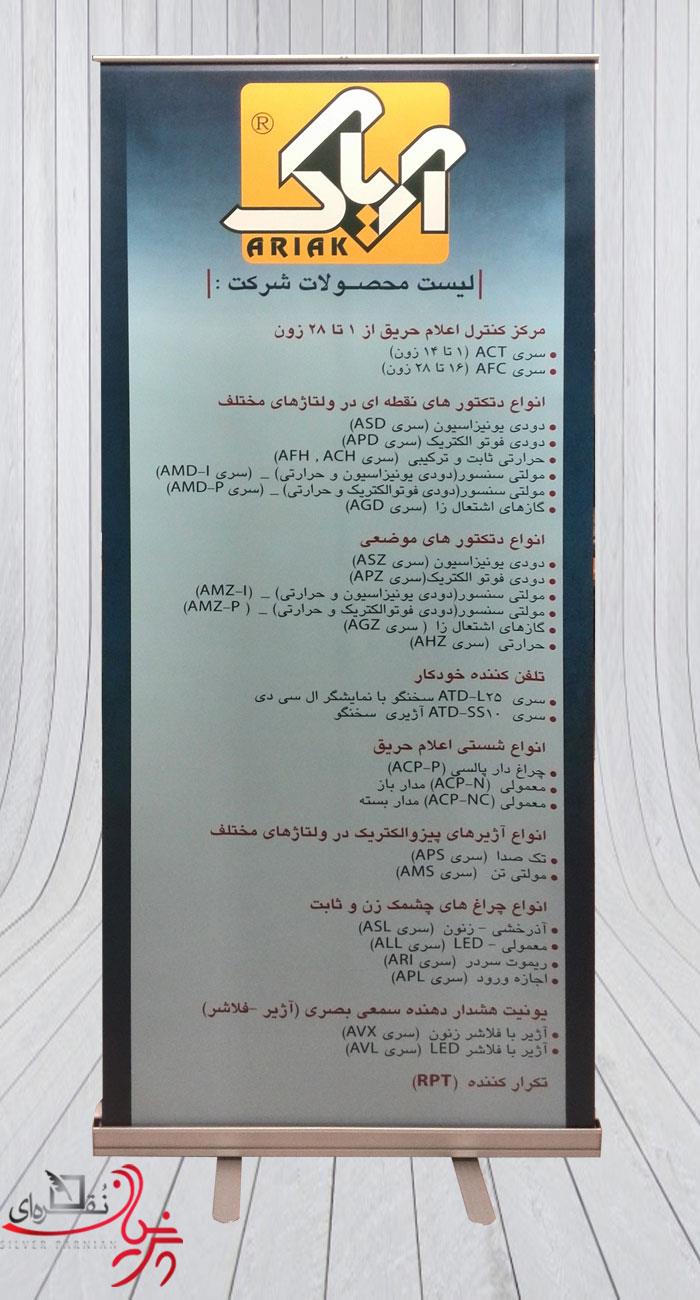 ®
آریاک
ARIAK
لیست محصولات شرکت :
مرکز کنترل اعلام حریق از ۱ تا ۲۸ زون
سری ACT (۱ تا ۱۴ زون)
سری AFC (۱۶ تا ۲۸ زون)
انواع دتکتور های نقطه ای در ولتاژهای مختلف
دودی یونیزاسیون (سری ASD)
دودی فوتو الکتریک (سری APD)
حرارتی ثابت و ترکیبی (سری AFH , ACH)
مولتی سنسور(دودی یونیزاسیون و حرارتی) _ (سری AMD-I)
مولتی سنسور(دودی فوتوالکتریک و حرارتی) _ (سری AMD-P)
گازهای اشتعال زا (سری AGD)
انواع دتکتور های موضعی
دودی یونیزاسیون (سری ASZ)
دودی فوتو الکتریک(سری APZ)
مولتی سنسور(دودی یونیزاسیون و حرارتی) _ (AMZ-I)
مولتی سنسور(دودی فوتوالکتریک و حرارتی) _ (AMZ-P )
گازهای اشتعال زا ( سری AGZ)
حرارتی (سری AHZ)
تلفن کننده خودکار
سری ATD-L۲۵ سخنگو با نمایشگر ال سی دی
سری ATD-SS۱۰ آژیری سخنگو
انواع شستی اعلام حریق
چراغ دار پالسی (ACP-P)
معمولی (ACP-N) مدار باز
معمولی (ACP-NC) مدار بسته
انواع آژیرهای پیزوالکتریک در ولتاژهای مختلف
تک صدا (سری APS)
مولتی تن (سری AMS)
انواع چراغ های چشمک زن و ثابت
آذرخشی - زنون (سری ASL)
معمولی - LED (سری ALL)
ریموت سردر (سری ARI)
اجازه ورود (سری APL)
یونیت هشدار دهنده سمعی بصری (آژیر -فلاشر)
آژیر با فلاشر زنون (سری AVX)
آژیر با فلاشر LED (سری AVL)
تکرار کننده (RPT)
پرنیان نقره‌ای
SILVER PARNIAN